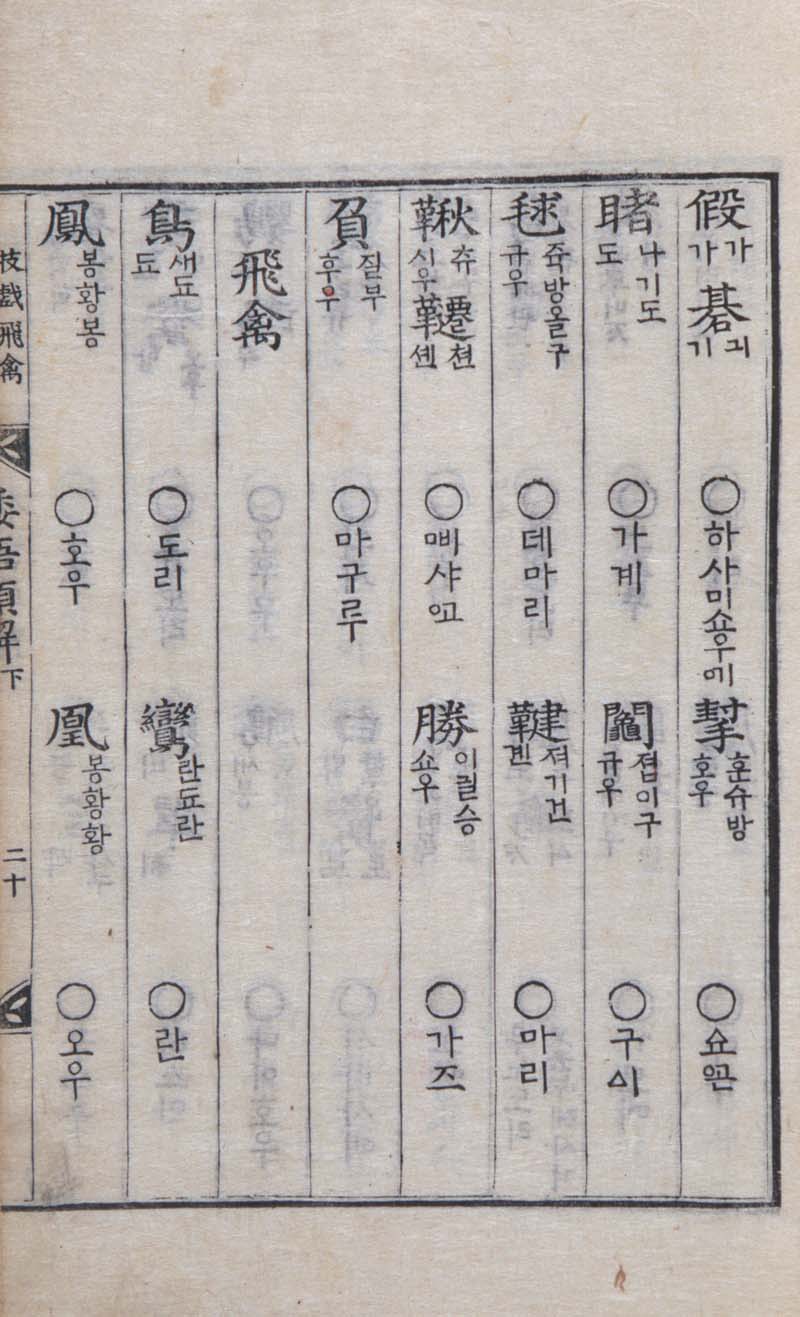 假 가 가 碁 긔 기 ○하사미쇼우 擊 훈슈방 호우 ○
賭 나기도 도 ○가계 졉이구 규우 ○구ᅀᅵ
毬 방올구 규우 ○데마리 鞬 져기건 겐 ○마리
鞦 츄 시우 韆 쳔 셴 ○ 勝 이긜승 쇼우 ○가즈
負 질부 후우 ○마구루
飛禽
鳥 새됴 됴 ○도리 鸞 란됴란 ○란
鳳 봉황봉 ○호우 凰 봉황황 ○오우
技戲飛禽 倭語類解下 二十